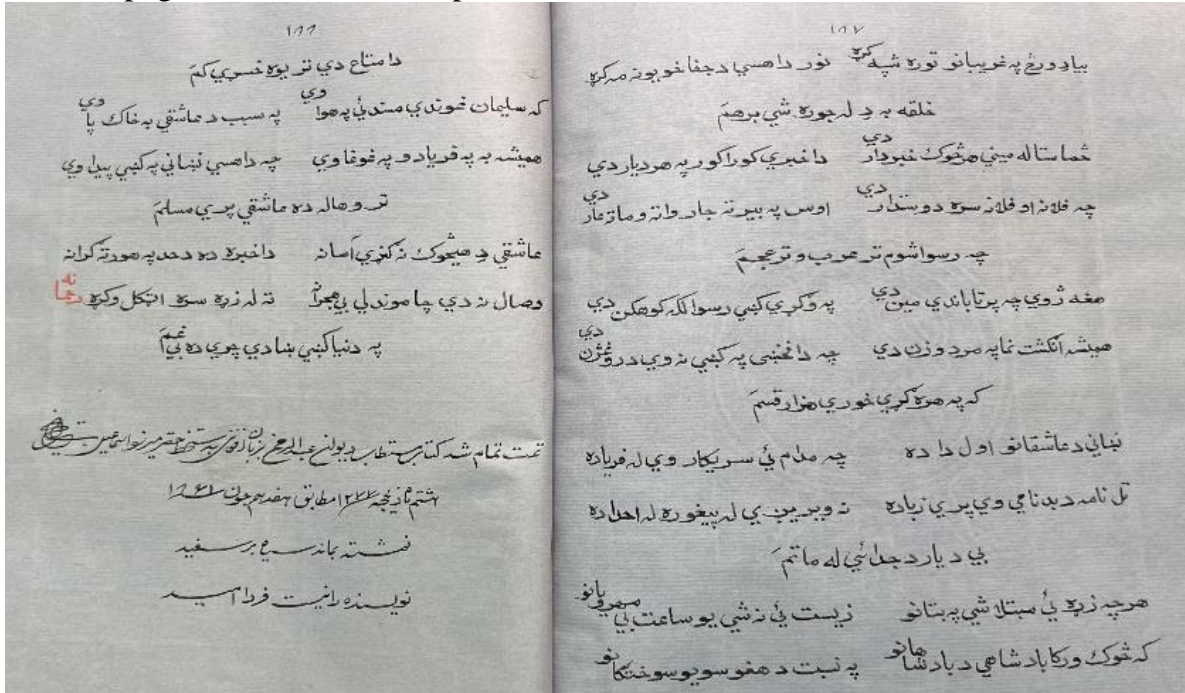 ۱۸۷
بیادورځ په غریبانو توره شپه کړه نور داهسي دجفا خویونه مه کړه
خلقه به دِ له جوره شي برهم
څما ستا له مینې هرڅوک خبردار دي دا خبرې کور اکور په هر دیار دي
چه فلانه او فلانه سره دوستدار دي اوس په بیرته جار واته وماته عار دي
چه رسوا شوم تر عرب و تر عجم
هغه ژوي چه پر تاباندې مین دي په وګړي کښې رسوا لکه کوهکن دي
همیشه انګشت نما په مرد و زن دي چه دا نخښې په کښې نه وي دروغژن دي
که په هره ګړۍ خوري هزار قسم
نښاني د عاشقانو اول دا ده چه مدام ئې سر یکار وي له فریاده
تل نامه د بدنامي وي پرې زیاده نه ویریږي له پیغوره له احداده
بي د یار د جدائي له ماتم
هرچه زړه ئې مبتلا شي په بتانو زیست ئې نه شي یو ساعت بې مهرویانو
که څوک ورکا بادشاهي د بادشاهانو په نسبت د هغو سویو سوختګانو
۱۸۸
دا متاع دي تر یوه خسرې کم
که سلیمان غوندې مسند ئې په هوا وي په سبب د عاشقي به خاک پا وي
همیشه به په فریاد و په غوغا وي چه داهسې نښاني په کښې پیدا وي
تر و هاله ده عاشقي پرې مسلم
عاشقي دِ هیڅوک نه ګڼري آسانه دا خبره ده د حد په هورته ګرانه
وصال نه دي چا موندلي بې هجرانه ته له زړه سره اټکل وکړه رحمانه
په دنیا کښې ښادي چرې ده بې غم
تمت تمام شد کتاب مستطاب دیوان عبدالرحمن بزبان افغانی بدستخط حقیر میرنواسماعیل
هشتم ماه ذیحجه ۱۲۷۷ مطابق هفدهم جون ۱۸۶۱
نوشته بماند سیه بر سفید
نویسنده را نیست فردا امید